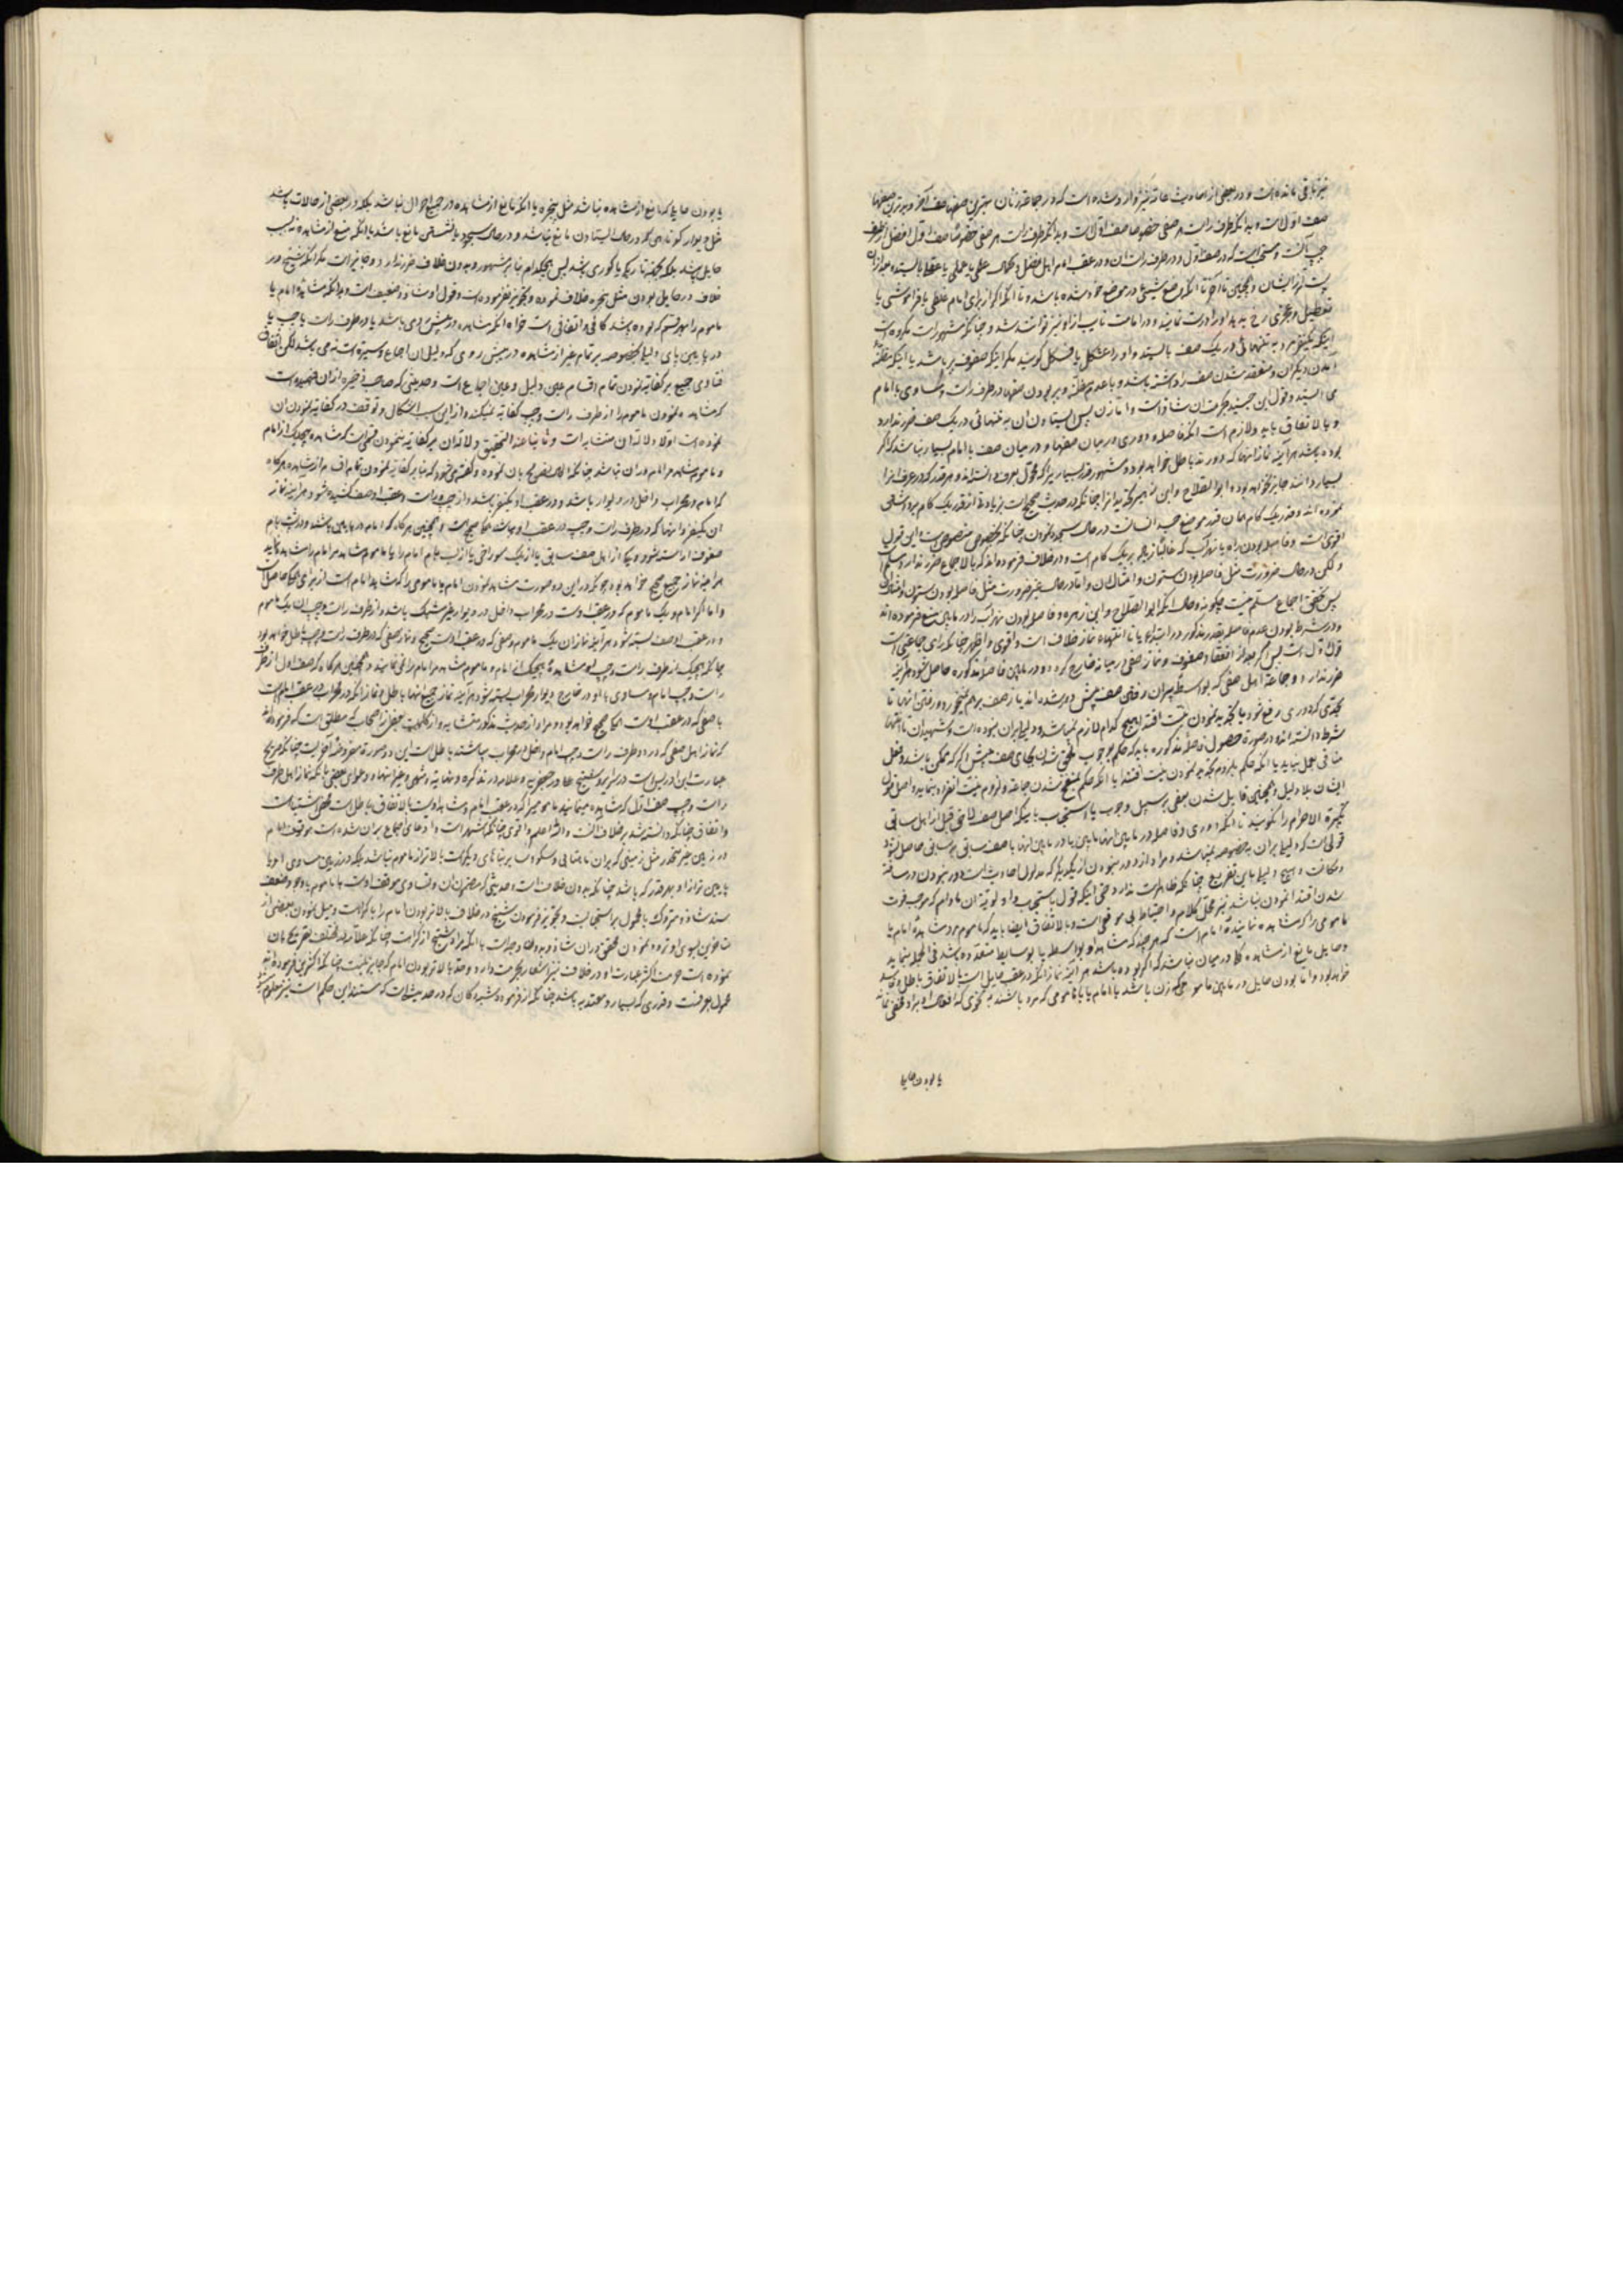 نیز باقی مانده است و در بعضی از احادیث عامه نیز وارد شده است که در جماعة زنان بهترین صفها صف آخر و بدترین صفها
صف اول است و بدانکه طرف راست هر صفی خصوصا صف اول است و بدانکه طرف راست هر صفی خصوصا صف اول افضل از طرف
چپ آنست و مستحب است که در صف اول و در طرف راست آن و در عقب امام اهل فضل و کمال علمی یا عملی یا عقلی بایستند و بعد از آن
پست‌تر ایشان و همچنین تا آخر تا آنکه وضع شیئی در موضع خود شده باشد و تا آنکه اگر از برای امام غلطی یا فراموشی یا
تعطیل و عجزی رخ بدهد او را درست نمایند و در امامت نایب از او نیز توانند شد و چنانکه مشهور است مکروه است
اینکه یکنفر مرد به تنهائی در یک صف بایستد و او را عشکل یا فسکل گویند مگر اینکه صفوف پر باشد یا اینکه مظنه
آمدن دیگران و منعقد شدن صف را داشته باشد و با عدم مظنه و پر بودن صفها در طرف راست و مساوی با امام
می ایستد و قول ابن جنید بحرمت آن شاذ است و اما زن پس ایستادن آن به تنهائی در یک صف ضرر ندارد
و بالاتفاق باید و لازم است آنکه فاصله و دوری در میان صفها و در میان صف با امام بسیار نباشد که اگر
بوده باشد هر آینه نماز آنها که دورند باطل خواهد بود و مشهور قدر بسیار را که محول بعرف دانسته‌اند و هر قدر که در عرف آنرا
بسیار دانند جایز نخواهد بود و ابوالصلاح و ابن زهره تحدید آنرا چنانکه در حدیث صحیح است بزیادتی از قدر یک کام مرد
نموده‌اند و قدر یک کام همان قدر موضع جسد انسانست در حال سجده نمودن چنانکه
اقوی است و فاصله بودن راه یا نهر آب که غالبا زیاده بر یک کام است و در خلاف فرموده‌اند که بالاجماع ضرر ندارد
و لکن در حال ضرورت مثل فاصله بودن ستون و امثال آن و اما در حال غیر ضرورت مثل فاصله بودن ستون و امثال آن
پس تحقق اجماع مسلم نیست چگونه و حال آنکه ابوالصلاح و ابن زهره و فاصله بودن نهر آب را در مابین منع فرموده‌اند
و در شرط بودن عدم فاصله بقدر مذکور در ابتداء یا تا انتهاء نماز خلاف است و اقوی و اظهر چنانکه رای جماعتی است
قول اول است پس اگر بعد از انعقاد صفوف و نماز صفی از میانه خارج کردد و در مابین فاصله مذکوره حاصل شود هر آینه
ضرر ندارد و جماعة اهل صفی که بواسطه بیرون رفتن صف پیش دور شده‌اند باز صف بر هم نمیخورد و رفتن آنها تا
بحدی که دوری رفع شود یا تجدید نمودن نیت اقتدا هیچ کدام لازم نمیباشد و دلیل بر آن نبوده است و شهیدان تا انتها
شرط دانسته‌اند در صورة حصول فاصله مذکوره باید که حکم بوجوب ملحق شدن بجای صف پیش اگر که ممکن باشد و فعل
منافی بعمل نیاید یا آنکه حکم بلزوم تجدید نمودن نیت اقتدا یا آنکه حکم بمنفسخ شدن جماعة و لزوم نیت انفراد بنماید و اصل قول
ایشان بلا دلیل و همچنین قایل شدن بعضی بر سبیل وجوب یا استحباب باینکه اهل صف لاحق قبل از اهل سابق
تکبیرة الاحرام را نگویند تا آنکه دوری و فاصله در مابین آنها مابین یا در مابین آنها با صف سابق بر سابق حاصل نشود
قولی است که دلیل بر آن بخصوصه نمیباشد و مراد از دور نبودن از یکدیگر که مدلول احادیث است دور نبودن در مسافت
و مکانست و هیچ دلیل باین تفریع چنانکه ظاهر است ندارد حتی اینکه قول باستحباب و اولویت آن مادام که موجب فوت
شدن اقتدا نمودن نباشد نیز محل کلام و احتیاط بی موقعی است و بالاتفاق ایضا باید که ماموم مرد مشاهده امام یا
مامومی را که مشاهده نماینده امام است که هر چند که مشاهده او بواسطه یا بوسایط متعدده باشد فی الجمله بنماید
و حایلی مانع از مشاهده کلا در میان نباشد که اگر بوده باشد هر آینه نماز آنکه در عقب حایل است بالاتفاق باطل و فاسد
خواهد بود و اما بودن حایل در مابین مامومی که زن باشد با امام یا با مامومی که مرد باشند به نحوی که افعال او بر او مخفی نماند
یا بودن حایل
یا بودن حایلی که مانع از مشاهده نباشد مثل پنجره یا آنکه مانع از مشاهده در جمیع احوال نباشد بلکه در بعضی از حالات باشد
مثل دیوار کوتاهی که در حال ایستادن مانع نباشد و در حال سجود یا نشستن مانع باشد یا آنکه منع از مشاهده نه بسبب
حایل باشد بلکه بجهة تاریکی یا کوری باشد پس هیچکدام بنابر مشهور و بدون خلاف ضرر ندارد و جایز است مگر آنکه شیخ در
خلاف در حایل بودن مثل پنجره خلاف نموده و تجویز نفرموده است و قول او شاذ و ضعیف است و بدانکه مشاهده امام یا
ماموم را بهر قسم که بوده باشد کافی و اتفاقی است خواه آنکه مشاهده در پیش روی باشد یا در طرف راست یا چپ یا
در پایین پای و دلیل بخصوصه بر تمام غیر از مشاهده در پیش روی که دلیل آن اجماع و سیره است نمی باشد لکن اتفاق
فتاوی جمیع بر کفایة نمودن تمام اقسام عین دلیل و عین اجماع است و حدیثی که صاحب ذخیره از آن فهمیده است
که مشاهده نمودن ماموم را از طرف راست و چپ کفایة نمیکند و از این سبب اشکال و توقف در کفایة نمودن آن
نموده است اولا دلالة آن متشابه است و ثانیا عند التحقیق دلالة آن بر کفایة ننمودن قسمی است که مشاهده هیچیک از امام
و ماموم مشاهد مر امام در آن نباشد چنانکه
که امام در محراب داخل در دیوار باشد و در عقب او یکنفر باشد و از جهت راست و عقب او صف کشیده شود هر آینه نماز
آن یکنفر و آنها که در طرف راست و چپ در عقب او میباشند همگی صحیح است و همچنین هر گاه که امام در مابین باشد
صفوف آراسته شود و یکی از اهل صف سابق یا از یک سوراخی یا از لب بام امام را یا ماموم مشاهد مر امام را مشاهده نماید
هر آینه نماز جمیع صحیح خواهد بود چونکه در این دو صورت مشاهده نمودن امام یا مامومی را که مشاهد امام است از برای همگی حاصل است
و اما اگر امام و یک ماموم که در عقب اوست در محراب داخل در دیوار غیر مشبک باشد و از طرف راست و چپ آن یک ماموم
و در عقب او صف بسته شود هر آینه نماز آن یک ماموم و صفی که در عقب اوست صحیح و نماز صفی که در طرف راست و چپ باطل خواهد بود
چونکه هیچیک از طرف راست و چپ او مشاهده هیچیک از امام و ماموم مشاهد مر امام را نمی نمایند و همچنین هر گاه که صف اول از طرف
راست و چپ امام و مساوی با او در خارج دیوار محراب بسته شود هر آینه نماز جمیع آنها باطل و نماز آنکه در محراب در عقب امام است
یا صفی که در عقب اوست همگی صحیح خواهد بود و مراد از حدیث مذکور متشابه و از کلمات بعضی از اصحاب که مطلق است که فرموده‌اند
که نماز اهل صفی که در دو طرف راست و چپ امام داخل در محراب میباشند باطل است این دو صورة مفروضه آخر است چنانکه صریح
عبارت ابن ادریس است در سرایر و شیخ طاوسی و علامه در تذکره و نهایه و منتهی و غیر اینها و دعوای بعضی باینکه نماز اهل طرف
راست و چپ صف اول که مشاهده مینمایند مامومی را که در عقب امام و مشاهد اوست بالاتفاق باطل است محض اشتباه است
و اتفاق چنانکه دانسته شد بر خلاف آنست و الله اعلم و اقوی چنانکه مشهور است و ادعای اجماع بر آن شده است موقف امام
در زمین غیر منحدر مثل زمینی که بر آن تابستانی و سکو است یا بناهای دیگر است بالاتر از ماموم نباشد بلکه در زمین مساوی او یا
پایین تر از او بهر قدر که باشد چنانکه بدون خلاف است و حدیثی که متضمن آن و تساوی موقف اوست با ماموم با وجود ضعف
سند شاذ و متروک یا محمول بر استحباب است و تجویز فرمودن شیخ در خلاف بالاتر بودن امام را با کراهت و میل نمودن بعضی از
متاخرین بسوی او و تردد نمودن محقق در آن شاذ و بدون وجه است یا آنکه مراد شیخ از کراهت چنانکه علامه در مختلف تصریح بآن
نموده است حرمت اگر عبارت او در خلاف نیز اشعار بحرمت دارد و حد بالاتر بودن امام که جایز نیست چنانکه اکثرین فرموده‌اند
محول بعرفست و قدری که بسیار و معتد به باشد چنانکه از فرموده شبیه دکان که در حدیثی است که مستند این حکم است نیز معلوم میشود